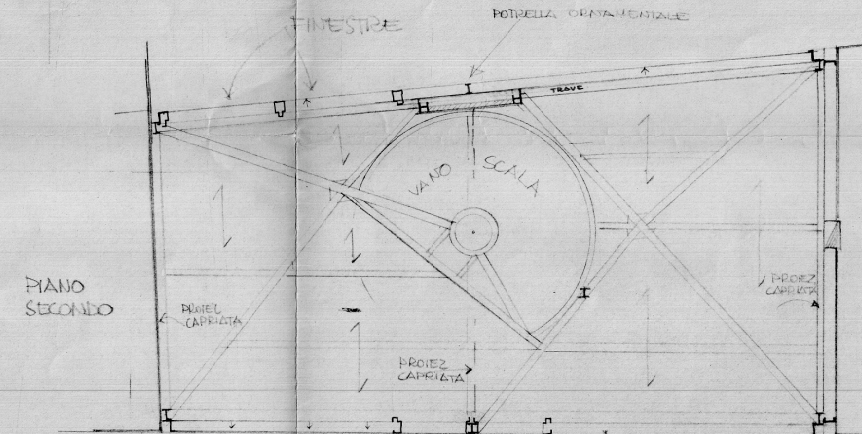 FINESTRE
POTRELLA ORNAMENTALE
TRAVE
VANO SCALA
PIANO
SECONDO
PROIEZ
CAPRIATA
PROIEZ
CAPRIATA
PROIEZ
CAPRIATA